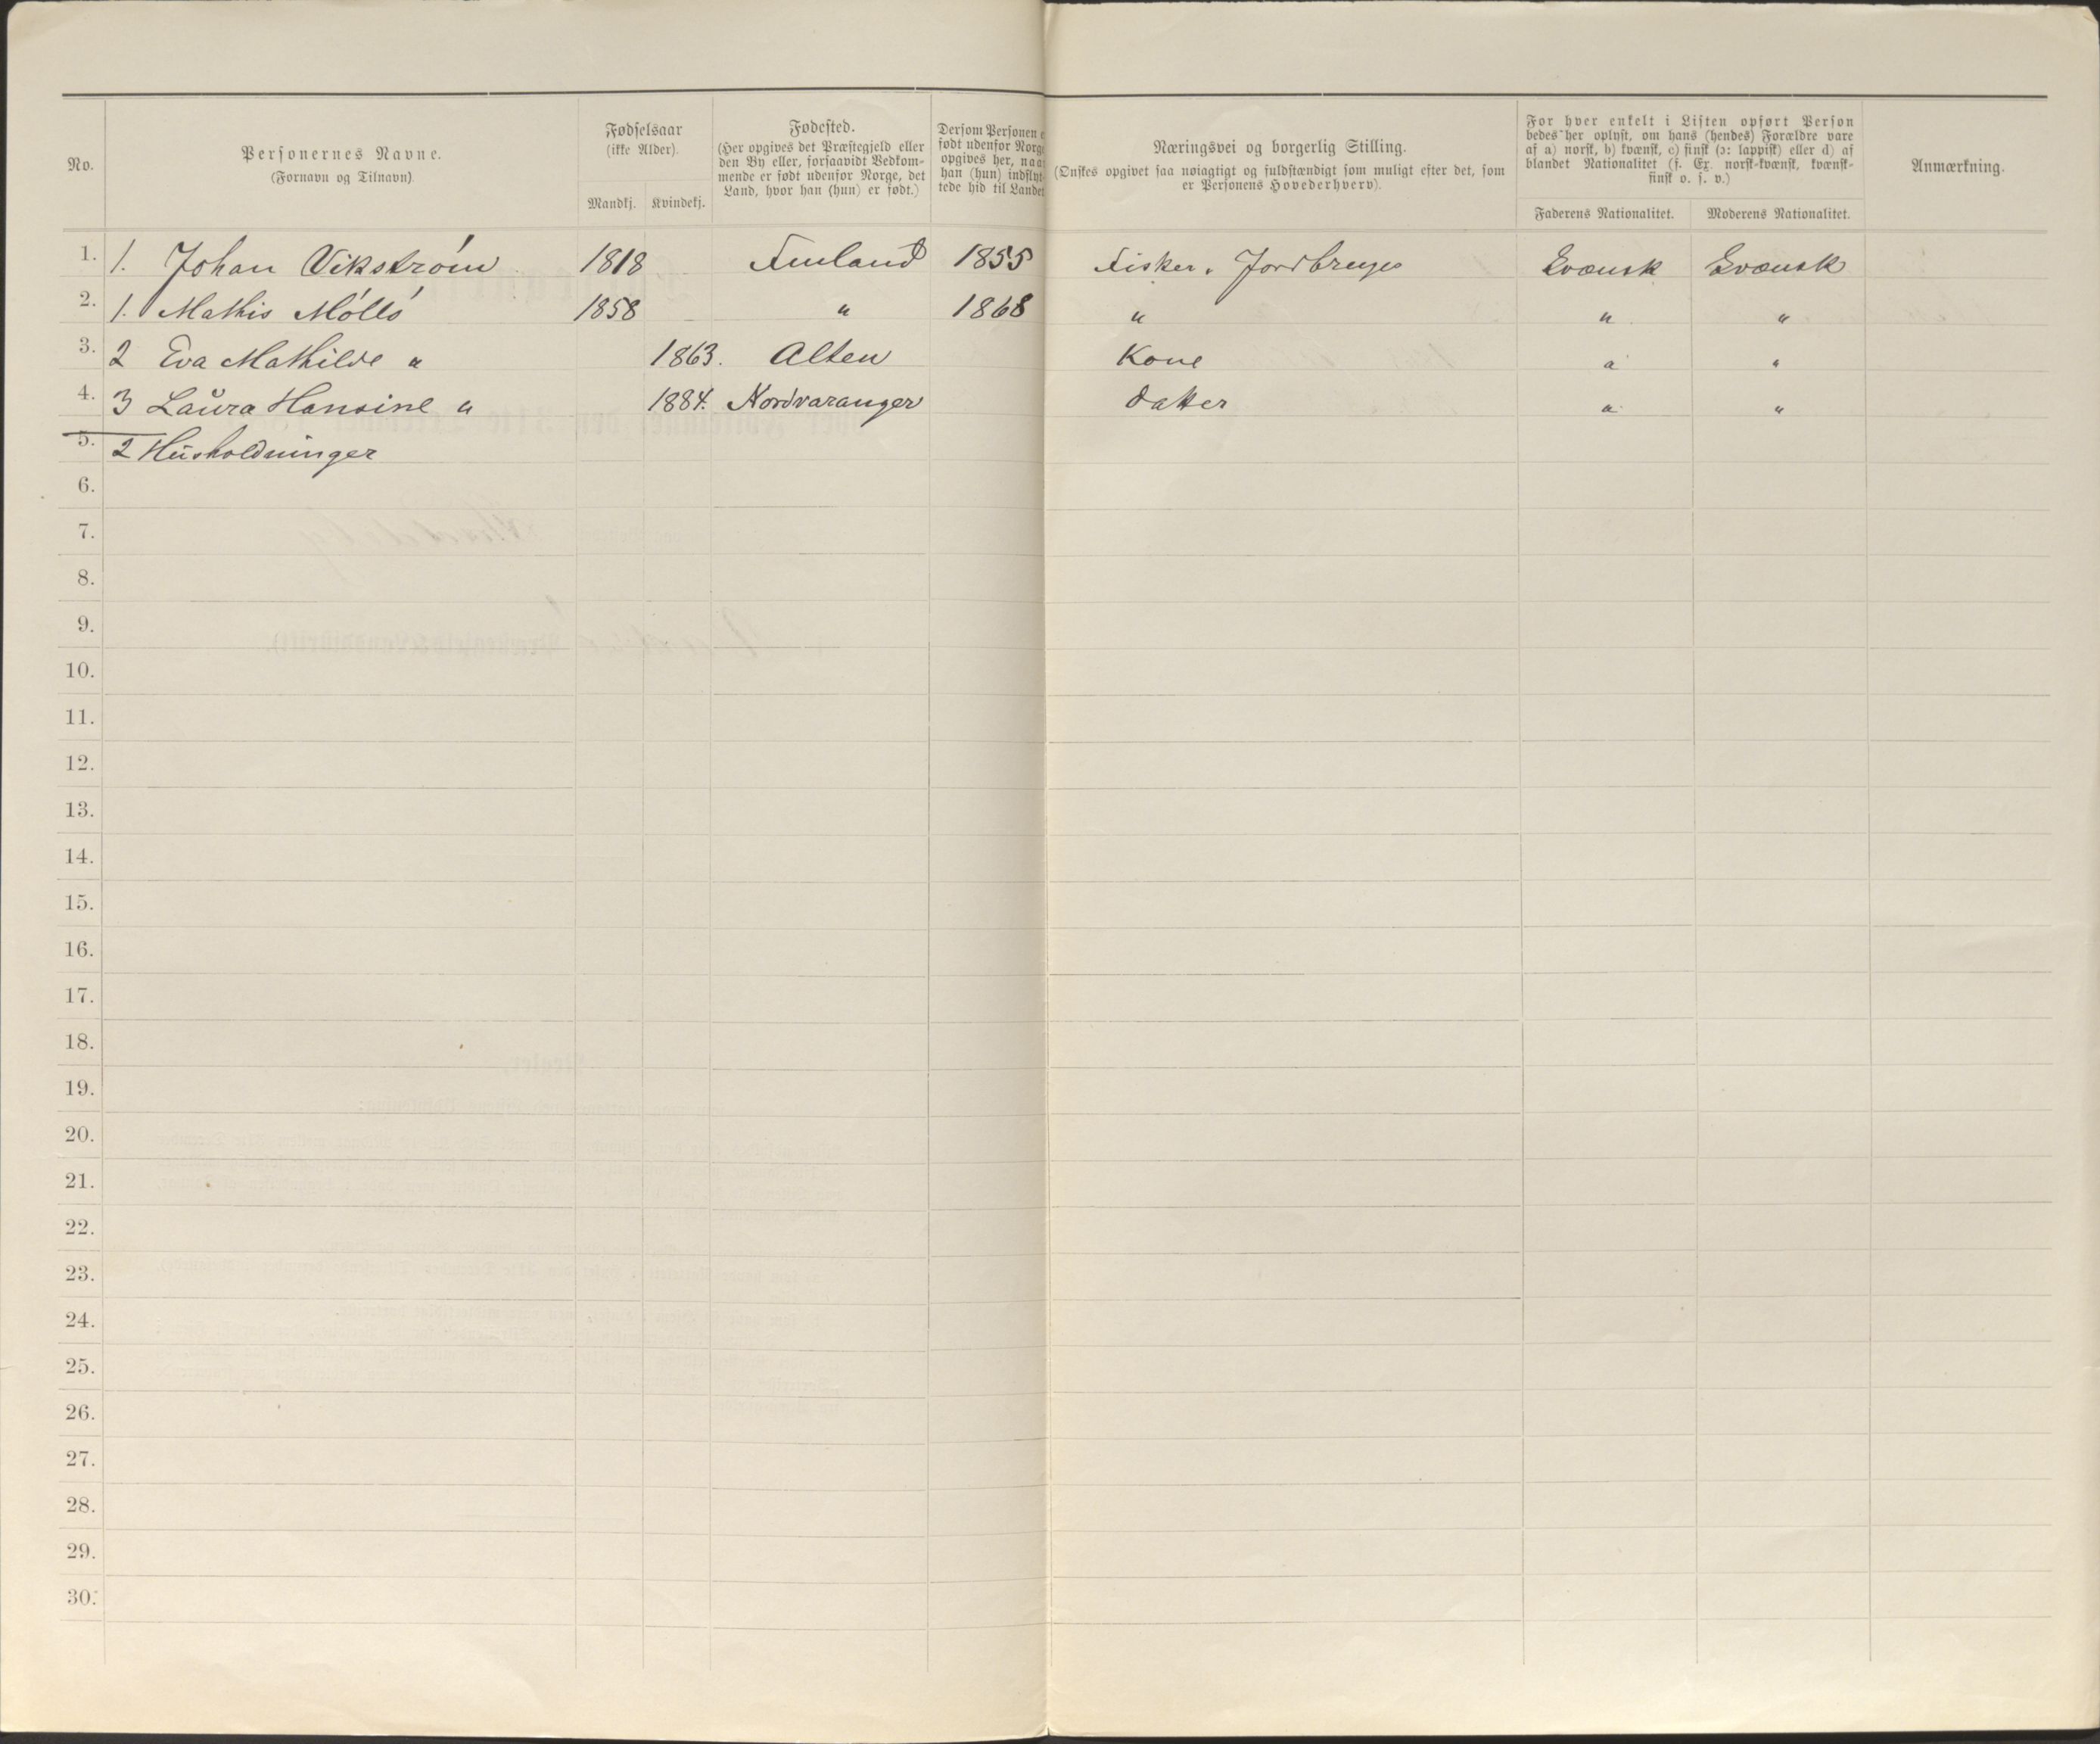 No.
Personernes Navne.
(Fornavn og Tilnavn).
Fødselsaar
(ikke Alder).
Mandkj. Kvindekj.
Fødested.
(Her opgives det Præstegjeld eller
den By eller, forsaavidt Vedkom-
mende er født udenfor Norge, det
Land, hvor han (hun) er født.)
Dersom Personen
født udenfor
opgives her,
han (hun)
tede hid til
Næringsvei og borgerlig Stilling.
(Ønskes opgivet saa nøiagtigt og fuldstændigt som muligt efter det, som
er Personens Hovederhverv).
For hver enkelt i Listen opført Person
bedes her oplyst, om hans (hendes) Forældre vare
af a) norsk, b) kvænsk, c) finsk (ɔ: lappisk) eller d) af
blandet Nationalitet (f. Ex. norsk-kvænsk, kvænsk-
finsk o. s. v.)
Faderens Nationalitet. Moderens Nationalitet.
Anmærkning.
1. 1. Johan Vikström 1818 Finland 1855 Fisker. Jordbruger Qvænsk Qvænsk
2. 1. Mathis Möllö 1858 " 1868 " " "
3. 2 Eva Mathilde " 1863. Alten Kone " "
4. 3 Laura Hansine " 1884. Nordvaranger datter " "
5. 2 Husholdninger
6.
7.
8.
9.
10.
11.
12.
13.
14.
15.
16.
17.
18.
19.
20.
21.
22.
23.
24.
25.
26.
27.
28.
29.
30.